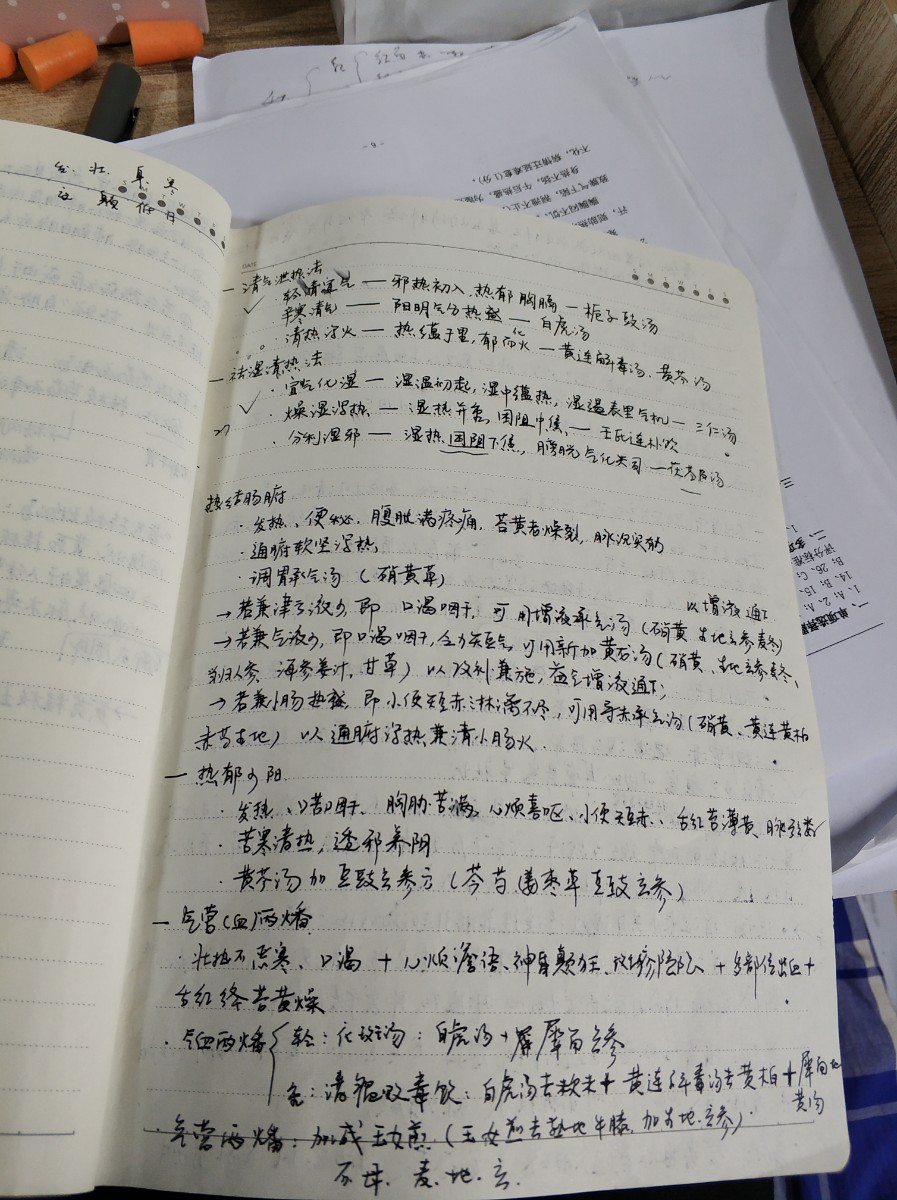 一 清气泄热法
· 轻清宣气 — 邪热初入,热郁胸膈 — 栀子豉汤
辛寒清气 — 阳明气分热盛 — 白虎汤
· 清热泻火 — 热蕴于里,郁而化火 — 黄连解毒汤、黄芩汤
一 祛湿清热法
· 宣气化湿 — 湿温初起,湿中蕴热,湿遏表里气机 — 三仁汤
· 燥湿泻热 — 湿热并重,困阻中焦 — 王氏连朴饮
· 分利湿邪 — 湿热困阻下焦,膀胱气化失司 — 茯苓皮汤
热结肠腑
· 发热、便秘、腹胀满疼痛,苔黄者燥裂,脉沉实
· 通腑软坚泻热
· 调胃承气汤(硝黄草)
以增液通下
→若兼津亏液少,即口渴咽干,可用增液承气汤(硝黄 生地玄参麦冬)
→若兼气液少,即口渴咽干,全力短气,可用新加黄龙汤(硝黄、生地玄参麦冬、
当归人参、海参姜汁,甘草)以攻补兼施,益气增液通下;
→若兼小肠热盛,即小便短赤淋漓不尽,可用导赤承气汤(硝黄、黄连黄柏
赤芍生地)以通腑泻热兼清小肠火.
一 热郁少阳
· 发热、口苦口干、胸胁苦满,心烦喜呕、小便短赤、舌红苔薄黄、脉弦数
· 苦寒清热,透邪养阴
· 黄芩汤加豆豉玄参方(芩芍姜枣草豆豉玄参)
一 气营(血)两燔
· 壮热不恶寒、口渴 + 心烦谵语、神昏癫狂、斑疹隐隐 + 多部位出血 +
舌红绛苔黄燥
· 气血两燔 轻:化斑汤:白虎汤+犀角玄参
重:清瘟败毒饮:白虎汤去粳米+黄连解毒汤去黄柏+犀角地黄汤
气营两燔:加减玉女煎(玉女煎去熟地牛膝,加生地、玄参)
石、母、麦、地、玄.